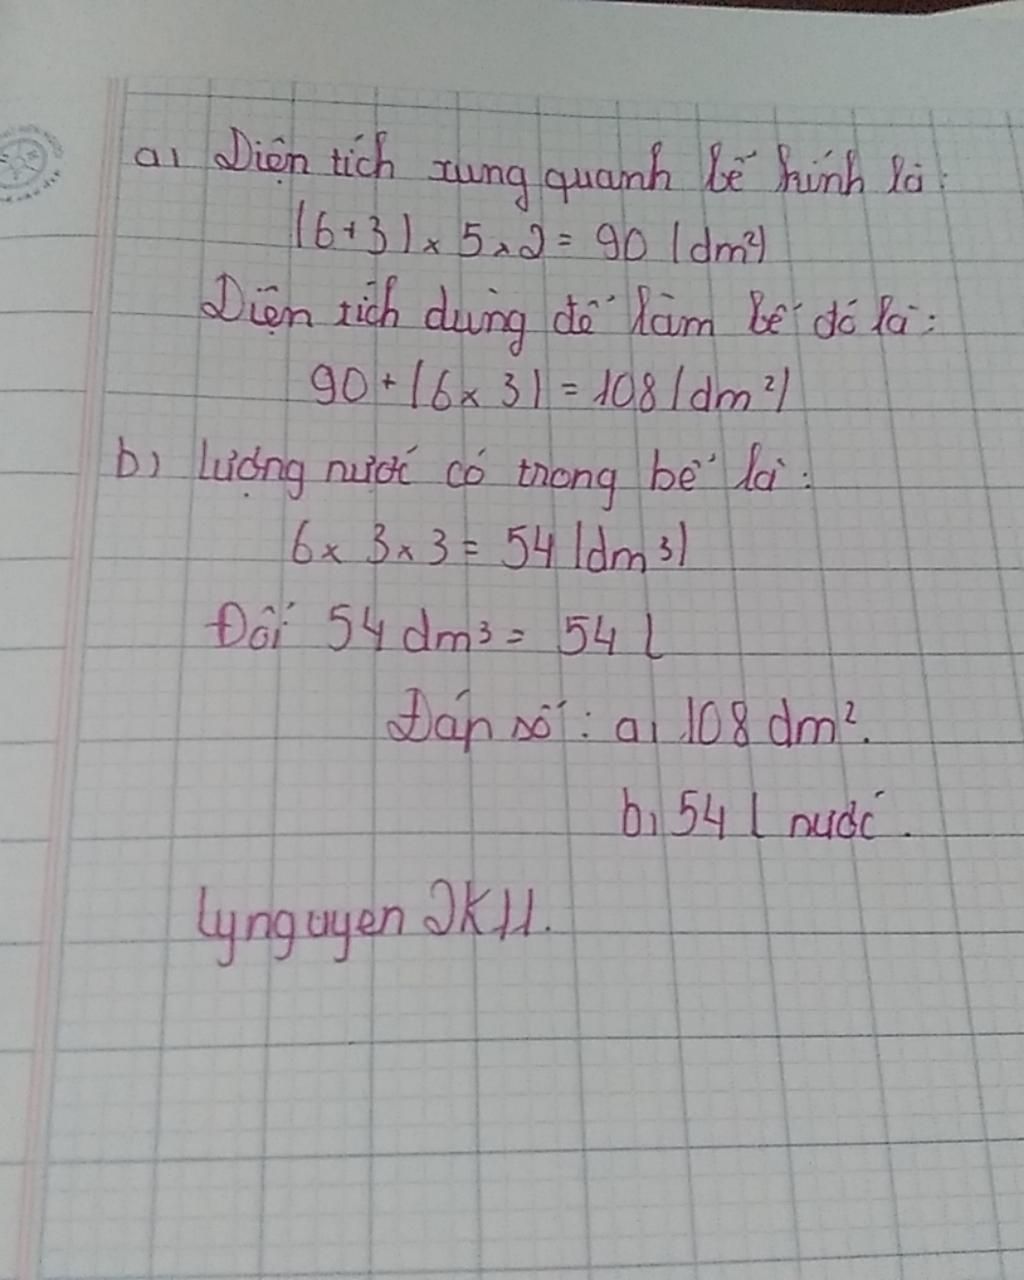 a) Diện tích xung quanh bể kính là:
(6+3) x 5 x 2 = 90 (dm²)
Diện tích dùng để làm bể đó là:
90 + (6 x 3) = 108 (dm²)
b) Lượng nước có trong bể là:
6 x 3 x 3 = 54 (dm³)
Đổi 54 dm³ = 54 L
Đáp số: a) 108 dm².
b) 54 L nước.
Lynguyen 2K11.